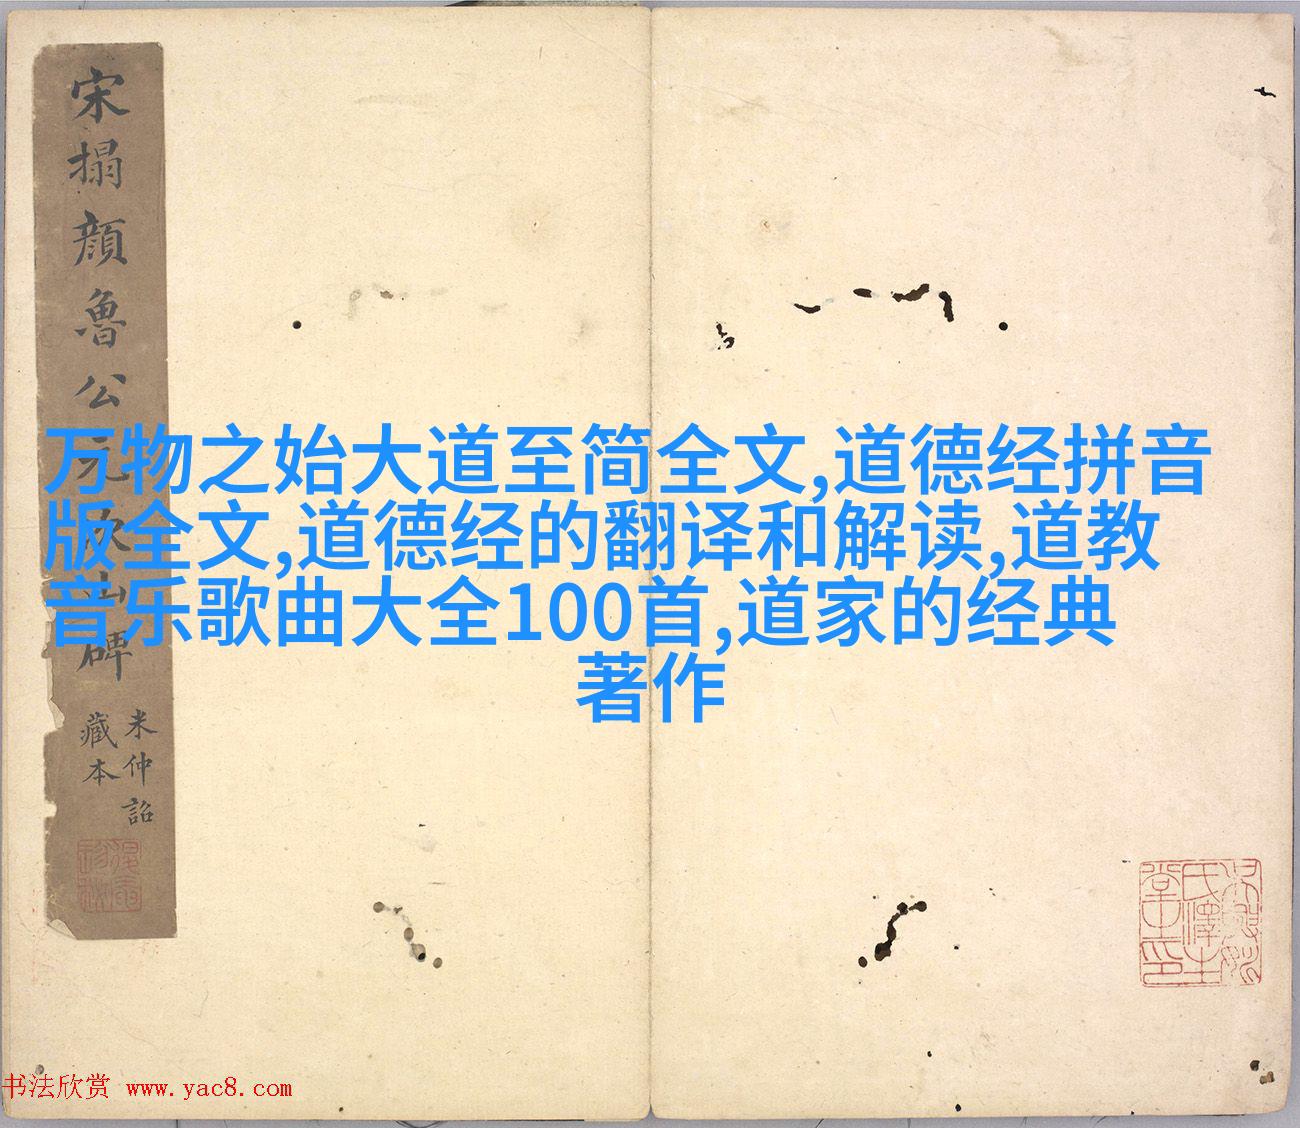 宋搨顔魯公元次山碑
米仲詔
藏本
万物之始大道至简全文,道德经拼音
版全文,道德经的翻译和解读,道教
音乐歌曲大全100首,道家的经典
著作
书法欣赏 www.yac8.com